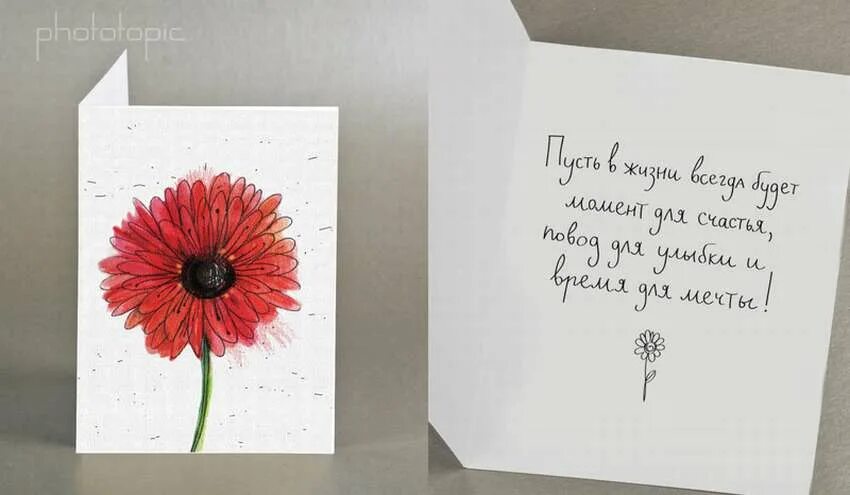 phototopic
Пусть в жизни всегда будет
момент для счастья,
повод для улыбки и
время для мечты!